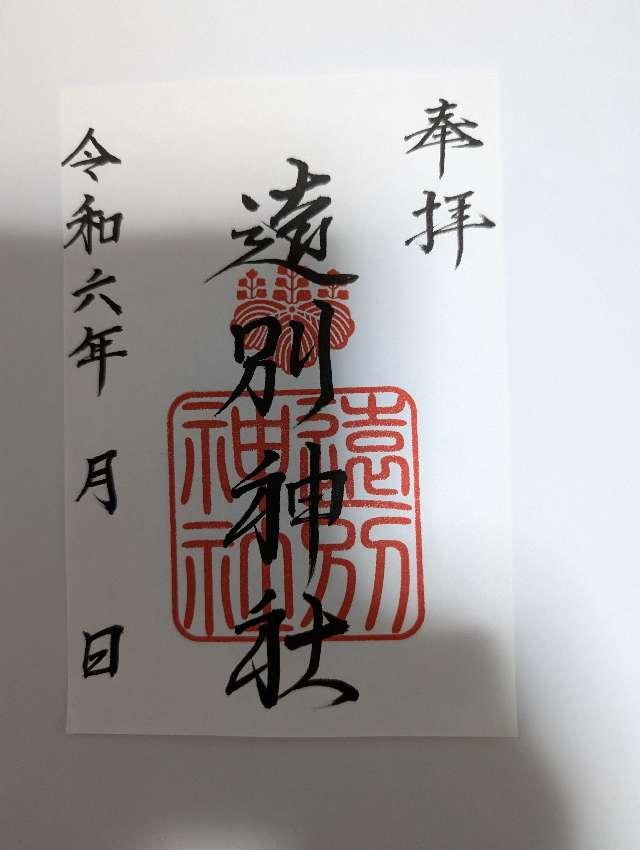 奉拝
遠別神社
遠別
神社
令和六年 月 日